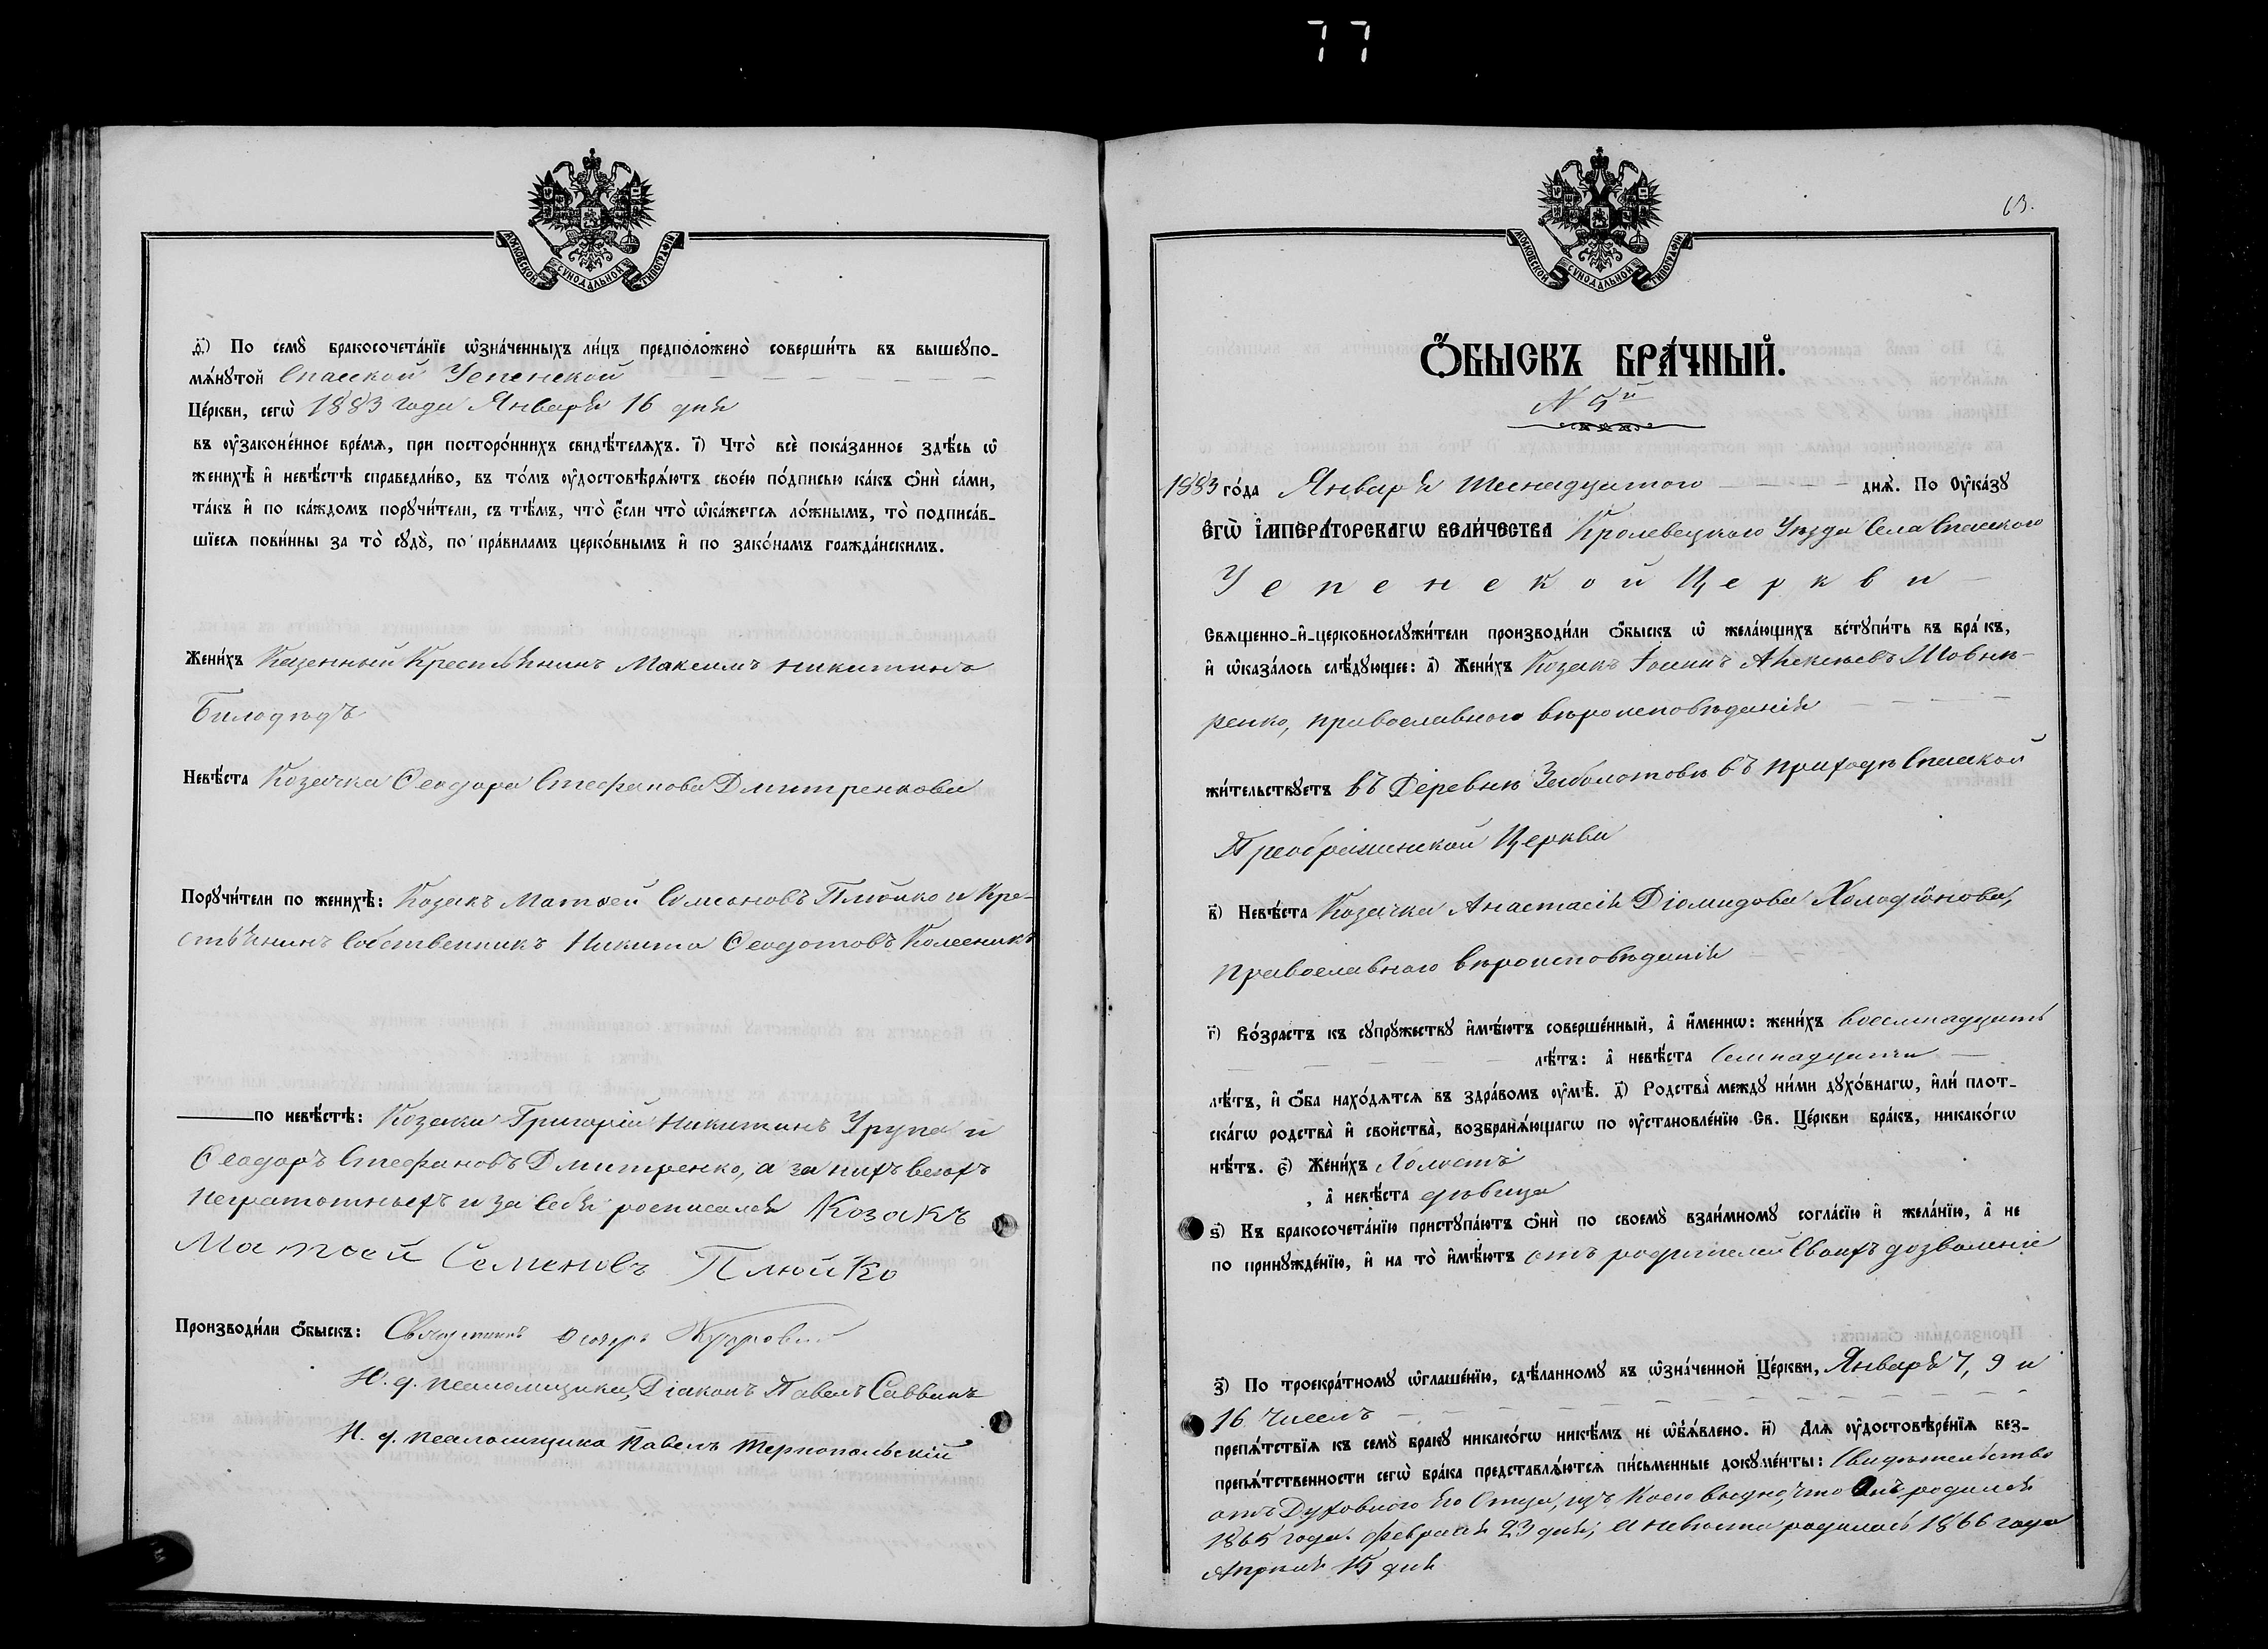 77
МОСКОВСКОЙ СѴНОДАЛЬНОЙ ТИПОГРАФІИ
д҃) По семꙋ̀ бракосочета́нїе ѡ҆зна́ченныхъ ли́цъ предположено̀ соверши́ть въ вышеꙋпо-
мѧ́нꙋтой Спаской Успенской
Це́ркви, сегѡ̀ 1883 года Января 16 дня
въ ᲂу҆зако́ненное вре́мѧ, при посторо́ннихъ свидѣ́телѧхъ. і҃) Что̀ всѐ пока́занное здѣ́сь ѡ҆
женихѣ̀ и҆ невѣ́стѣ справедли́во, въ то́мъ ᲂу҆достовѣрѧ́ютъ свое́ю по́дписью ка́къ ѻ҆нѝ са́ми,
та́къ и҆ по ка́ждомъ порꙋчи́тели, съ тѣ́мъ, что̀ є҆́сли что̀ ѡ҆ка́жетсѧ ло́жнымъ, то̀ подписа́в-
шїесѧ пови́нны за то̀ сꙋдꙋ̀, по пра́виламъ церко́внымъ и҆ по зако́намъ гражда́нскимъ.
Жени́хъ Казенный Крестьянинъ Максимъ Никитинъ
Билодѣдъ
Невѣ́ста Козачка Ѳеодора Стефанова Дмитренкова
Порꙋчи́тели по женихѣ̀: Козакъ Матѳей Симеоновъ Плюйко и Кре-
стьянинъ Собственникъ Никита Ѳеодотовъ Колесникъ
по невѣ́стѣ: Козаки Григорій Никитинъ Урупа и
Ѳеодоръ Стефановъ Дмитренко, а за нихъ всехъ
неграмотныхъ и за себя росписался Козакъ
Матѳей Семеновъ Плюйко
Производи́ли ѻ҆́быскъ: Священникъ
И. д. псаломщика, Діаконъ Павелъ Саввинъ
И. д. псаломщика Павелъ Тернопольскій
63.
МОСКОВСКОЙ СѴНОДАЛЬНОЙ ТИПОГРАФІИ
Ѻ҆́БЫСКЪ БРА́ЧНЫЙ.
N 5й
1883 го́да Января шеснадцатого днѧ̀. По Оу҆ка́зꙋ
Є҆гѡ̀ І҆мпера́торскагѡ вели́чества Кролевецкого Уѣзда Села Спаского
Успенской Церкви
Свѧще́нно-и҆-церковнослꙋжи́тели производи́ли ѻ҆́быскъ ѡ҆ жела́ющихъ встꙋпи́ть въ бра́къ,
и҆ ѡ҆каза́лось слѣ́дꙋющее: а҃) Жени́хъ Козакъ Іосифъ Алексѣевъ Шовкѣ-
ренко, православного вѣроисповѣданія
жи́тельствꙋетъ въ Деревнѣ Заболотовѣ въ приходѣ Спаской
Преображенской Церкви
в҃) Невѣ́ста Козачка Анастасія Діомидова Холодіонова,
православного вѣроисповѣданія
г҃) Во́зрастъ къ сꙋпрꙋ́жествꙋ и҆мѣ́ютъ соверше́нный, а҆ и҆́меннѡ: жени́хъ восемнадцать
лѣ́тъ: а҆ невѣ́ста семнадцати
лѣ́тъ, и҆ ѻ҆́ба нахо́дѧтсѧ въ здра́вомъ ᲂу҆мѣ̀. д҃) Родства̀ междꙋ ни́ми дꙋхо́внагѡ, и҆лѝ плот-
ска́гѡ родства̀ и҆ свойства̀, возбранѧ́ющагѡ по ᲂу҆становле́нїю Св. Це́ркви бра́къ, никако́гѡ
нѣ́тъ. є҃) Жени́хъ Холостъ
, а҆ невѣ́ста дѣвица
ѕ҃) Къ бракосочета́нїю пристꙋпа́ютъ ѻ҆нѝ по своемꙋ̀ взаи́мномꙋ согла́сїю и҆ жела́нїю, а҆ не
по принꙋжде́нїю, и҆ на то̀ и҆мѣ́ютъ отъ родителей своихъ дозволеніе
з҃) По троекра́тномꙋ ѡ҆глаше́нїю, сдѣ́ланномꙋ въ ѡ҆зна́ченной Це́ркви, Января 7, 9 и
16 чиселъ
препѧ́тствїѧ къ семꙋ̀ бракꙋ никако́гѡ никѣ́мъ не ѡ҆б̾ѧ́влено. и҃) Длѧ ᲂу҆достовѣре́нїѧ без-
препѧ́тственности сегѡ̀ бра́ка представлѧ́ютсѧ пи́сьменные докꙋме́нты: Свидѣтельство
отъ Духовного его Отца, изъ коего видно, что Онъ родился
1865 года. Февраля 23 дня; а невѣста родилась 1866 года
Апрѣля 15 дня